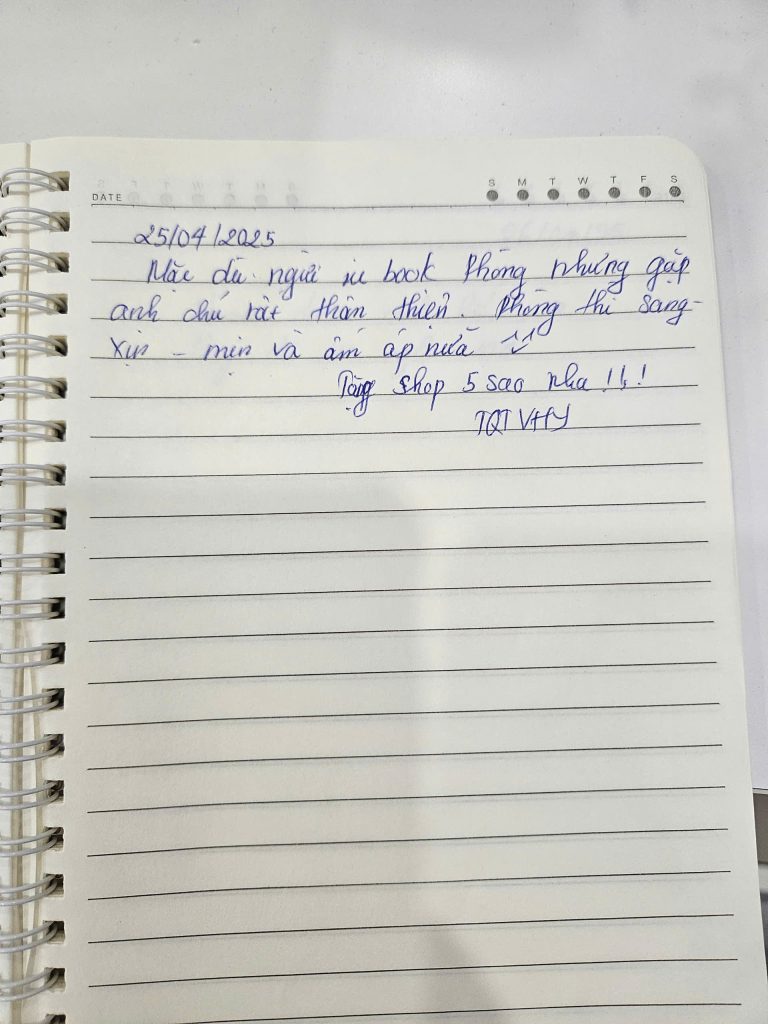 DATE
S M T W T F S
25/04/2025
Mặc dù người iu book phòng nhưng gặp
anh chủ rất thân thiện. Phòng thì sang-
xịn - mịn và ấm áp nữa ^^
Tặng shop 5 sao nha !!!
TQT VHY